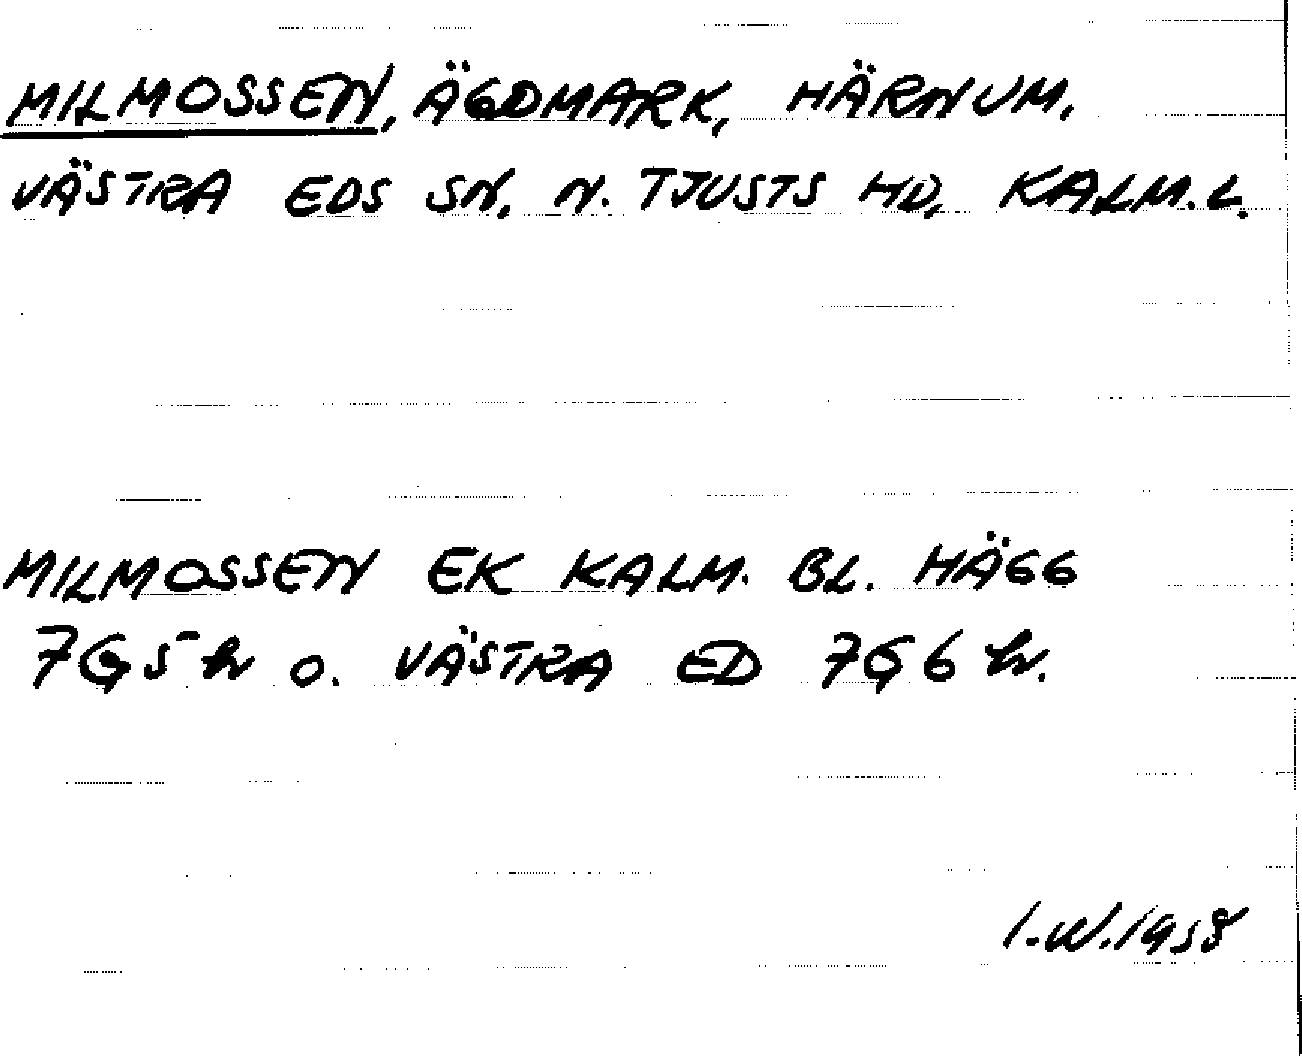 MILMOSSEN, ÄGOMARK, HÄRNUM,
VÄSTRA EDS SN, N. TJUSTS HD, KALM. L.
MILMOSSEN EK KALM. BL. HÄGG
7G 5 h o. VÄSTRA ED 7G 6 h.
I.W. 1958